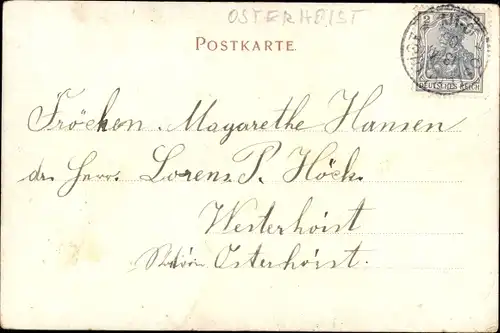 OSTERHOIST
POSTKARTE.
2
DEUTSCHES REICH
Fröcken. Magarethe Hansen
dr. Herr. Lorenz P. Höck.
Westerhoist
Osterhoist.